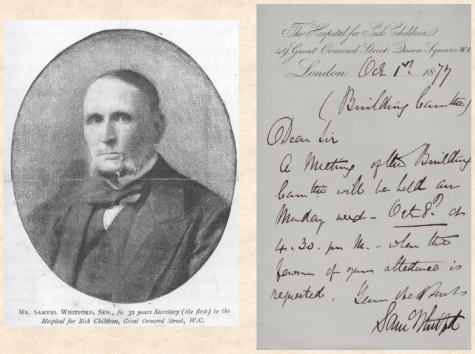 MR. SAMUEL WHITFORD, SEN., for 32 years Secretary (the first) to the
Hospital for Sick Children, Great Ormond Street, W.C.
The Hospital for Sick Children,
49, Great Ormond Street, Queen Square, W.C.
London, Oct 1st 1877
(Building Comttee)
Dear Sir
A Meeting of the Building
Comttee will be held on
Monday next – Oct 8th at
4.30. pm – when the
favour of your attendance is
requested.
Saml Whitford